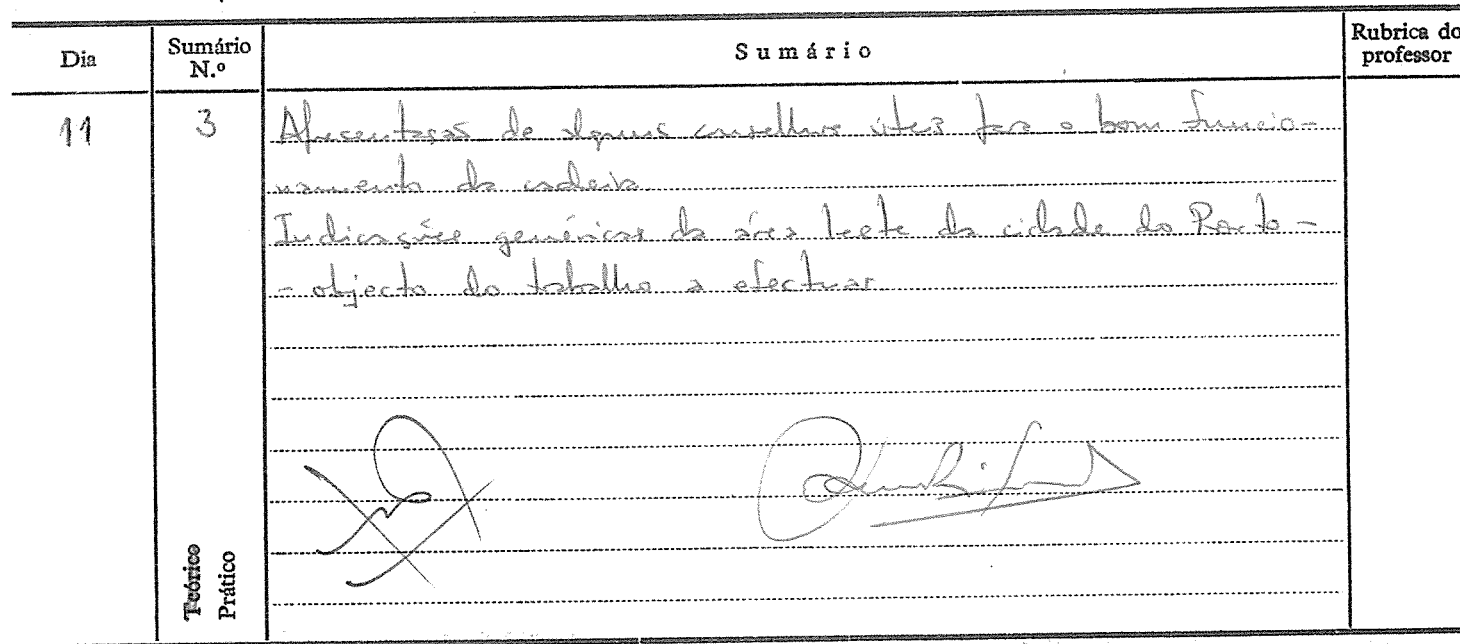 Dia
Sumário N.º
Sumário
Rubrica do professor
11
3
Apresentação de alguns conselhos úteis para o bom funcio-
namento da cadeira
Indicações genéricas da área leste da cidade do Porto -
- objecto do trabalho a efectuar
Teórico
Prático